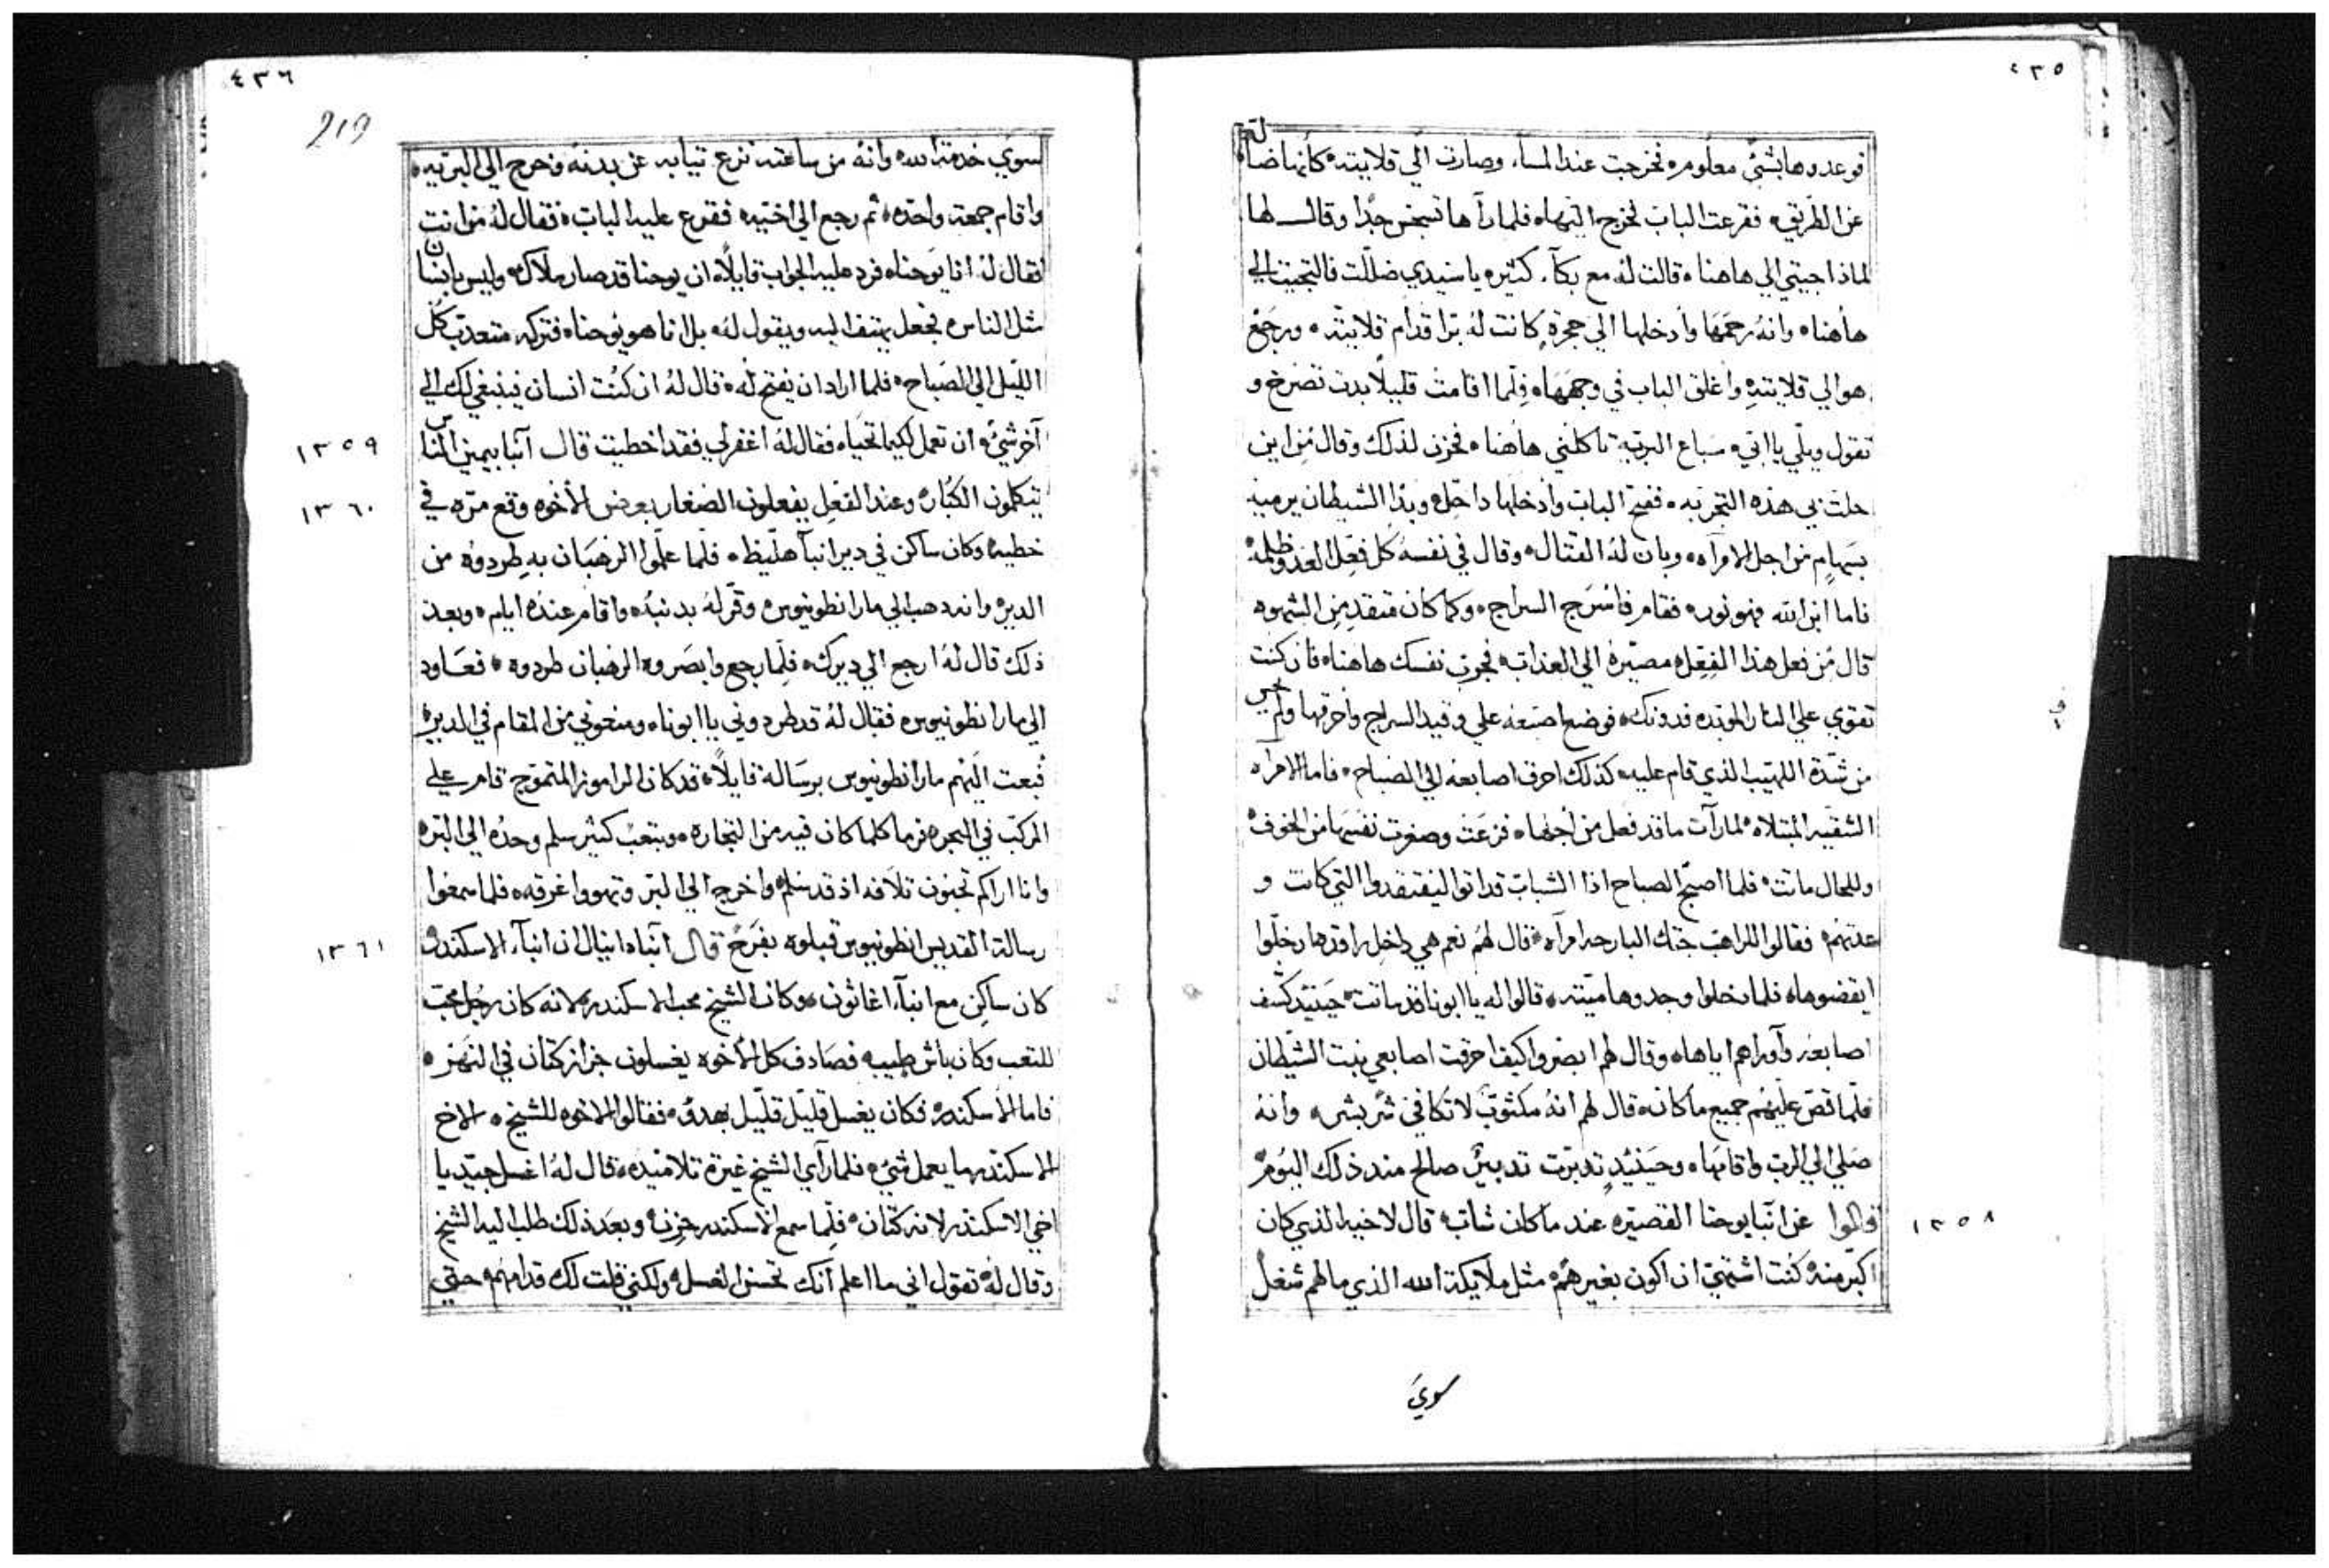 ٤٣٥
فوعدوها بشيء معلوم، فخرجت عند المساء، وصارت الي قلايته كأنها ضالة
عن الطريق، فقرعت الباب لخرج اليها، فلما رآها تسجس جدا وقال لها
لماذا جيتي الي هاهنا، قالت له مع بكآء كثير، يا سيدي ضللت فالتجيت الي
هاهنا، وانه رحمها وادخلها الي حجرة كانت له برا قدام قلايته، ورجع
هو الي قلايته واغلق الباب في وجهها، فلما اقامت قليلاً بدت تصرخ و
تقول ويلي يا ابي، سباع البرية تاكلني هاهنا، فحزن لذلك وقال من اين
حلت بي هذه التجربه، ففتح الباب وادخلها داخل، وبدا الشيطان يرميه
بسهام من اجل الامرآه، وبان له القتال، وقال في نفسه كل فعل العدو ظلمة
فاما ابن الله فهو نور، فقام فاسرج السراج، وكما كان متقد من الشهوه
قال من فعل هذا الفعل، مصيره الي العذاب، فجرب نفسك هاهنا، فان كنت
تقوي علي النار الموبده فدونك، فوضع اصبعه علي وقيد السراج واحرقها ولم يحس
من شدة اللهيب الذي قام عليه، كذلك احرق اصابعه الي الصباح، فاما الامرآه
الشقيه المبتلاه، لما رآت ما قد فعل من اجلها، فزعت وصغرت نفسها من الخوف،
وللحال ماتت، فلما اصبح الصباح اذا الشباب قد اتوا ليفتقدوا التي كانت و
عدتهم، فقالوا للراهب جتك البارحه امرآه، قال لهم نعم هي داخل راقده ادخلوا
ايقضوها، فلما دخلوا وجدوها ميته، قالوا له يا ابونا قد ماتت، حينيد كشف
اصابعه وآوراهم اياها، وقال لهم ابصروا كيف احرقت اصابعي بنت الشيطان
فلما قص عليهم جميع ما كان، قال لهم انه مكتوب لا تكافي شر بشر، وانه
صلي الي الرب واقامها، وحينيد تدبرت تدبير صالح مند ذلك اليوم،
١٣٥٨
قالوا عن آنبا يوحنا القصير، عند ما كان شاب، قال لاخيه الذي كان
اكبر منه، كنت اشتهي ان اكون بغير هم، مثل ملايكة الله الذي ما لهم شغل
سوي
٤٣٦
219
سوي خدمة الله، وانه من ساعته نزع ثيابه عن بدنه وخرج الي البريه،
واقام جمعه واحده، ثم رجع الي اخيه، فقرع عليه الباب، فقال له من انت
فقال له انا يوحنا، فرد عليه الجواب قايلاً، ان يوحنا قد صار ملاك، وليس بانسان
مثل الناس، فجعل يهتف اليه ويقول له، بل انا هو يوحنا، فتركه متعدب كل
الليل الي الصباح، فلما اراد ان يفتح له، قال له ان كنت انسان فينبغي لك الي
١٣٥٩
آخر شيء، ان تعمل لكيما تحيا، فقال له اغفر لي فقد اخطيت قال آنبا بيمين الناس
١٣٦٠
يتكلمون الكبار، وعند الفعل يفعلون الصغار بعض الاخوه وقع مره في
خطيه، وكان ساكن في دير انبآ هليط، فلما علموا الرهبان به طردوه من
الدير، وانه دهب الي مار انطونيوس، وقر له بدنبه، واقام عنده ايام، وبعد
ذلك قال له ارجع الي ديرك، فلما رجع وابصروه الرهبان طردوه، فعاود
الي مار انطونيوس، فقال له قد طردوني يا ابونا، ومنعوني من المقام في الدير،
فبعت اليهم مار انطونيوس برسالة قايلاً، قد كان الراموز المتموج قام علي
المركب في البحر، فرما كلما كان فيه من التجاره، وبتعب كثير سلم وحده الي البر،
وانا اراكم تحبون تلافه اذ قد سلم، واخرج الي البر، وتهووا غرقه، فلما سمعوا
١٣٦١
رسالة القديس انطونيوس قبلوه بفرح قال آنبا دانيال ان انبآ الاسكندر
كان ساكن مع انبآ اغاثون، وكان الشيخ محب الاسكندر، لانه كان رجل محب
للتعب وكان باش طيب، فصادف كل الاخوه يغسلون جزاز كتان في النهر،
فاما الاسكندر، فكان يغسل قليل قليل بهدو، فقالوا الاخوه للشيخ، الاخ
الاسكندر ما يعمل شيء، فلما رآي الشيخ غيرة تلاميده، قال له اغسل جيد يا
اخي الاسكندر لانه كتان، فلما سمع الاسكندر حزن، وبعد ذلك طلب اليه الشيخ
وقال له، تقول اني ما اعلم آنك تحسن الغسل، ولكني قلت لك قدامهم، حتي